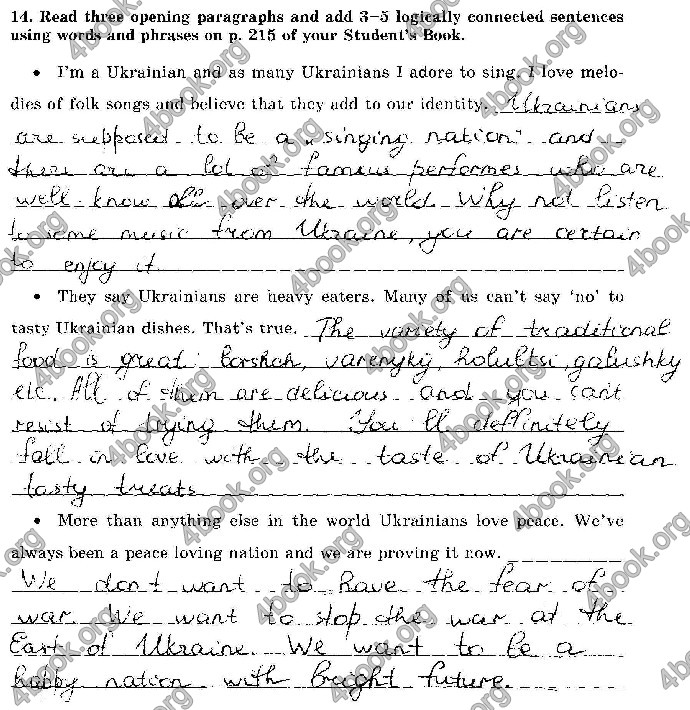 14. Read three opening paragraphs and add 3–5 logically connected sentences
using words and phrases on p. 215 of your Student's Book.
• I'm a Ukrainian and as many Ukrainians I adore to sing. I love melo-
dies of folk songs and believe that they add to our identity. Ukrainians
are supposed to be a „singing nation" and
there are a lot of famous performes who are
well-know all over the world. Why not listen
to some music from Ukraine, you are certain
to enjoy it.
• They say Ukrainians are heavy eaters. Many of us can't say 'no' to
tasty Ukrainian dishes. That's true. The variety of traditional
food is great: borshch, varenyky, holubtsi, galushky
etc. All of them are delicious and you can't
resist of trying them. You'll deffinitely
fall in love with the taste of Ukrainian
tasty treats
• More than anything else in the world Ukrainians love peace. We've
always been a peace loving nation and we are proving it now.
We don't want to have the fear of
war. We want to stop the war at the
East of Ukraine. We want to be a
happy nation with bright future.
4book.org